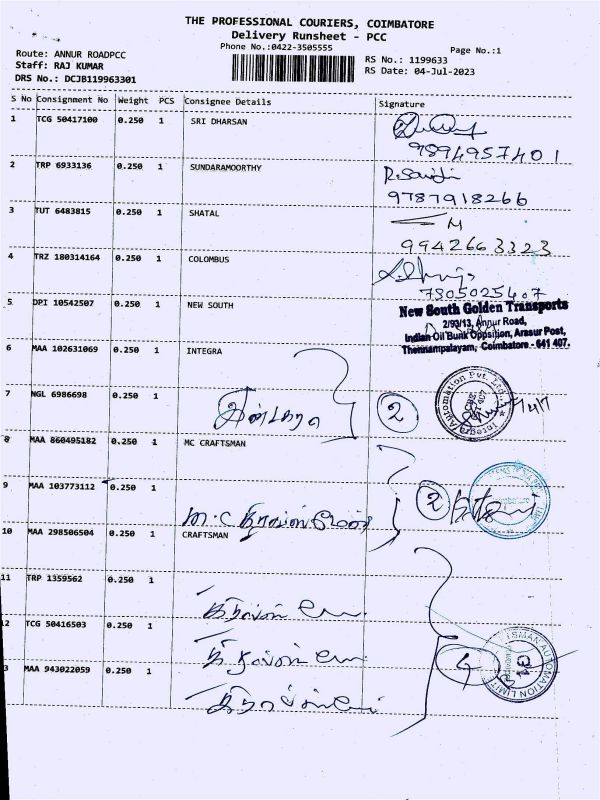 THE PROFESSIONAL COURIERS, COIMBATORE
Delivery Runsheet - PCC
Phone No.:0422-3505555
Page No.:1
Route: ANNUR ROADPCC
Staff: RAJ KUMAR
DRS No.: DCJB119963301
RS No.: 1199633
RS Date: 04-Jul-2023
S No Consignment No Weight PCS Consignee Details Signature
1 TCG 50417100 0.250 1 SRI DHARSAN
9894957401
2 TRP 6933136 0.250 1 SUNDARAMOORTHY
9787918266
3 TUT 6483815 0.250 1 SHATAL
M
9942663323
4 TRZ 180314164 0.250 1 COLOMBUS
7305025407
5 DPI 10542507 0.250 1 NEW SOUTH
New South Golden Transports
2/93/13, Annur Road,
Indian Oil Bunk Opposition, Arasur Post,
Thennampalayam, Coimbatore - 641 407.
6 MAA 102631069 0.250 1 INTEGRA
Integra Automation Pvt. Ltd.
7 NGL 6986698 0.250 1
2
8 MAA 860495182 0.250 1 MC CRAFTSMAN
9 MAA 103773112 0.250 1
2
10 MAA 298506504 0.250 1 CRAFTSMAN
11 TRP 1359562 0.250 1
12 TCG 50416503 0.250 1
4
AUTOMATION LIMITED
3 MAA 943022059 0.250 1